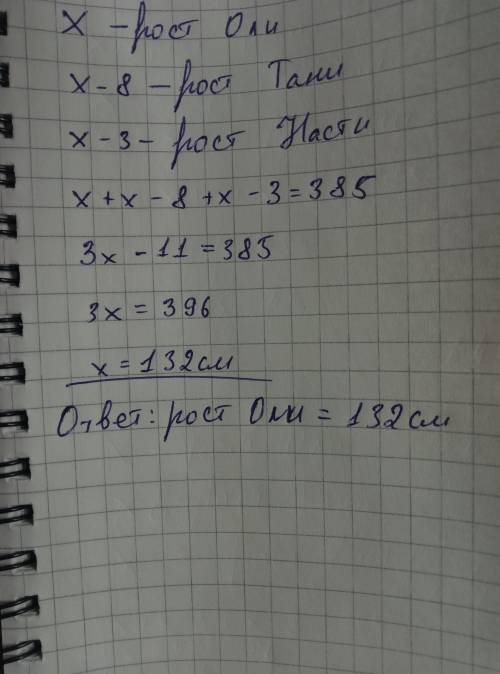 X - рост Оли
x - 8 - рост Тани
x - 3 - рост Насти
x + x - 8 + x - 3 = 385
3x - 11 = 385
3x = 396
x = 132 см
Ответ: рост Оли = 132 см